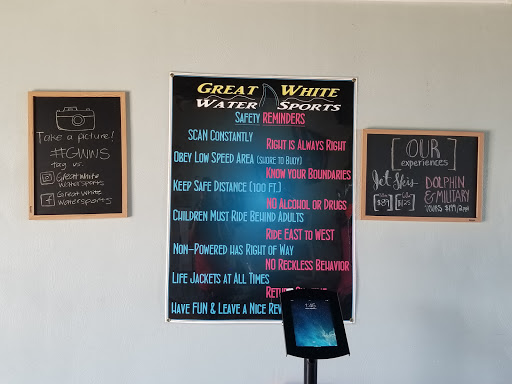 Take a picture!
#GWWS
tag us:
Great white
watersports
Great white
watersports
GREAT WHITE
WATER SPORTS
SAFETY REMINDERS
SCAN CONSTANTLY
RIGHT IS ALWAYS RIGHT
OBEY LOW SPEED AREA (SHORE TO BUOY)
KNOW YOUR BOUNDARIES
KEEP SAFE DISTANCE (100 FT.)
NO ALCOHOL OR DRUGS
CHILDREN MUST RIDE BEHIND ADULTS
RIDE EAST TO WEST
NON-POWERED HAS RIGHT OF WAY
NO RECKLESS BEHAVIOR
LIFE JACKETS AT ALL TIMES
HAVE FUN & LEAVE A NICE
1:45
[OUR]
experiences
Jet Skis
$89
$125
DOLPHIN
& MILITARY
TOURS